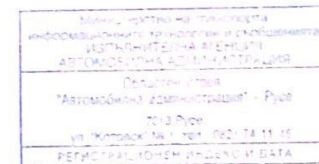 Министерство на транспорта
информационните технологии и съобщенията
ИЗПЪЛНИТЕЛНА АГЕНЦИЯ
АВТОМОБИЛНА АДМИНИСТРАЦИЯ
Областен отдел
"Автомобилна администрация" - Русе
7013 Русе
ул. "Котовск" № 1 тел. 082/
РЕГИСТРАЦИОНЕН ИНДЕКС И ДАТА